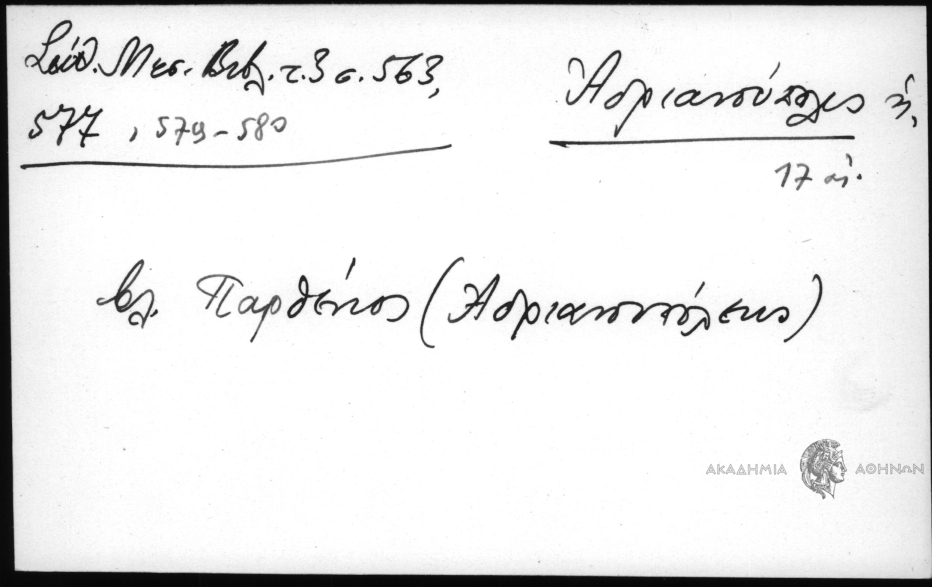 Σάθ. Μεσ. Βιβλ. τ. 3 σ. 563,
577, 579-580
Ἀδριανούπολις ἡ,
17 αἰ.
βλ. Παρθένιος (Ἀδριανουπόλεως)
ΑΚΑΔΗΜΙΑ ΑΘΗΝΩΝ